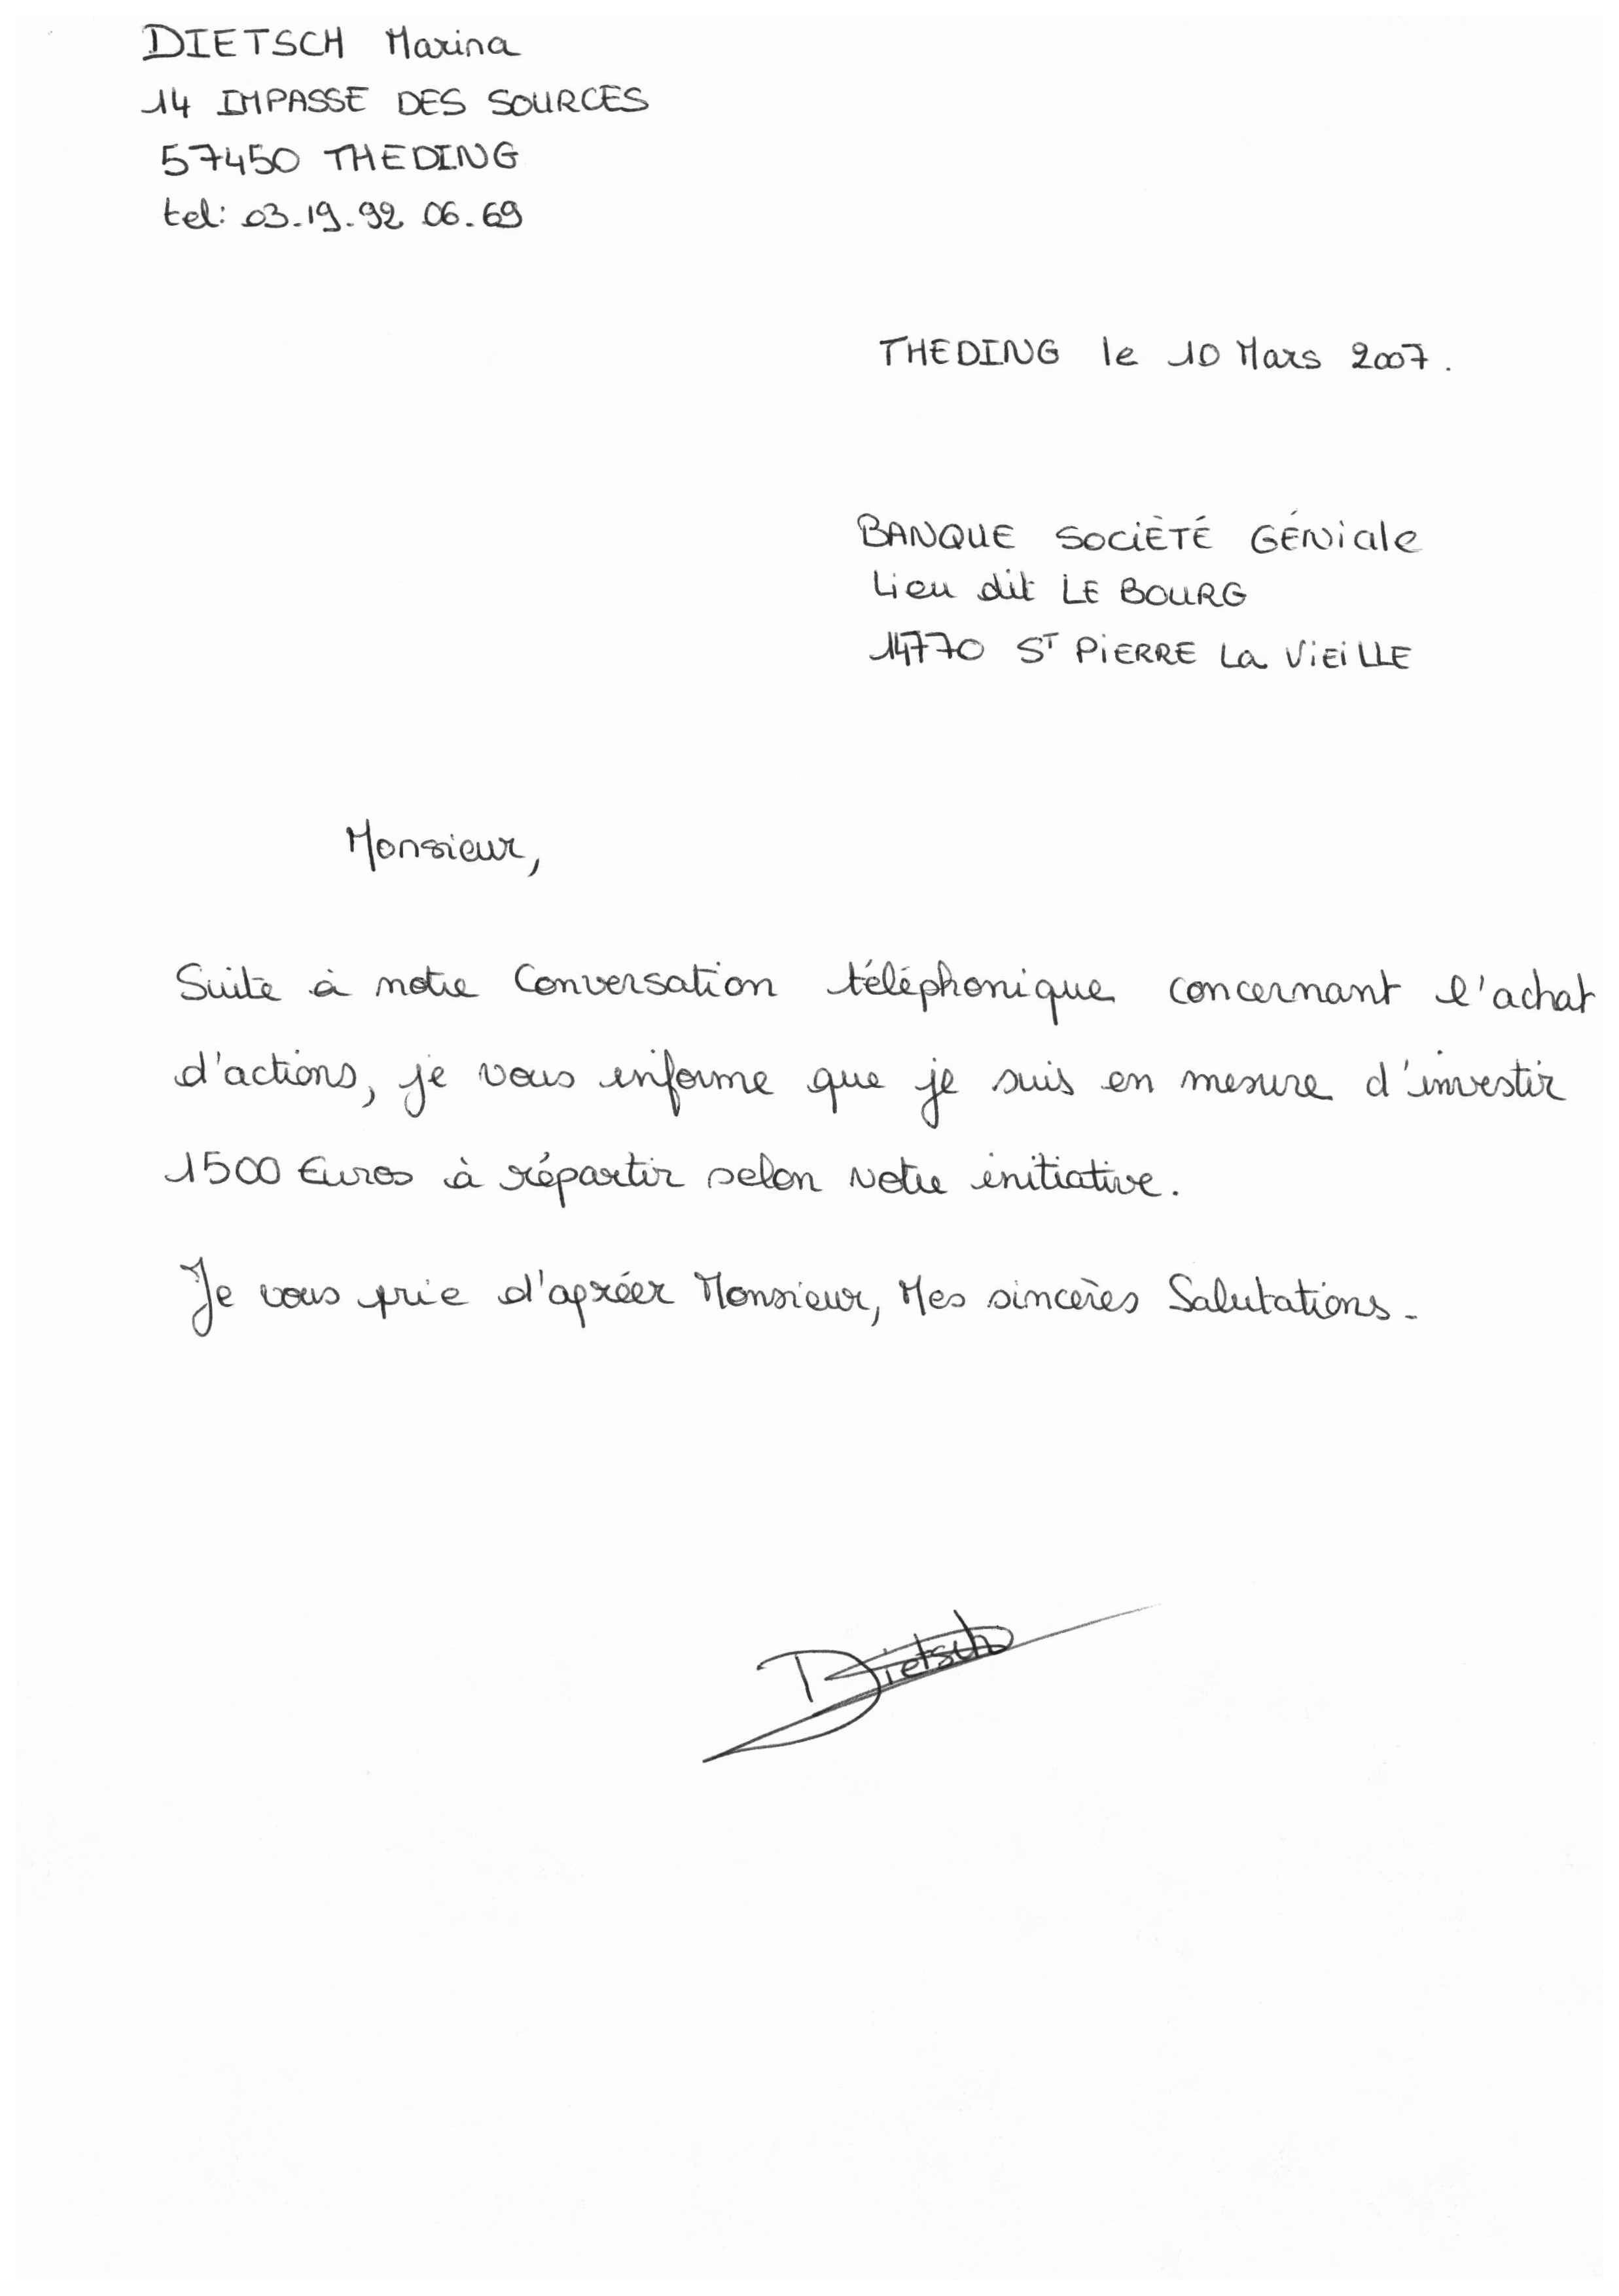 DIETSCH Marina
14 IMPASSE DES SOURCES
57450 THEDING
tel: 03.19.92.06.69
THEDING le 10 Mars 2007.
BANQUE SOCIÈTÉ GÉNiale
Lieu dit LE BOURG
14770 ST PIERRE La VIEILLE
Monsieur,
Suite à notre Conversation téléphonique concernant l'achat
d'actions, je vous informe que je suis en mesure d'investir
1500 Euros à répartir selon votre initiative.
Je vous prie d'agréer Monsieur, Mes sincères Salutations.
Dietsch